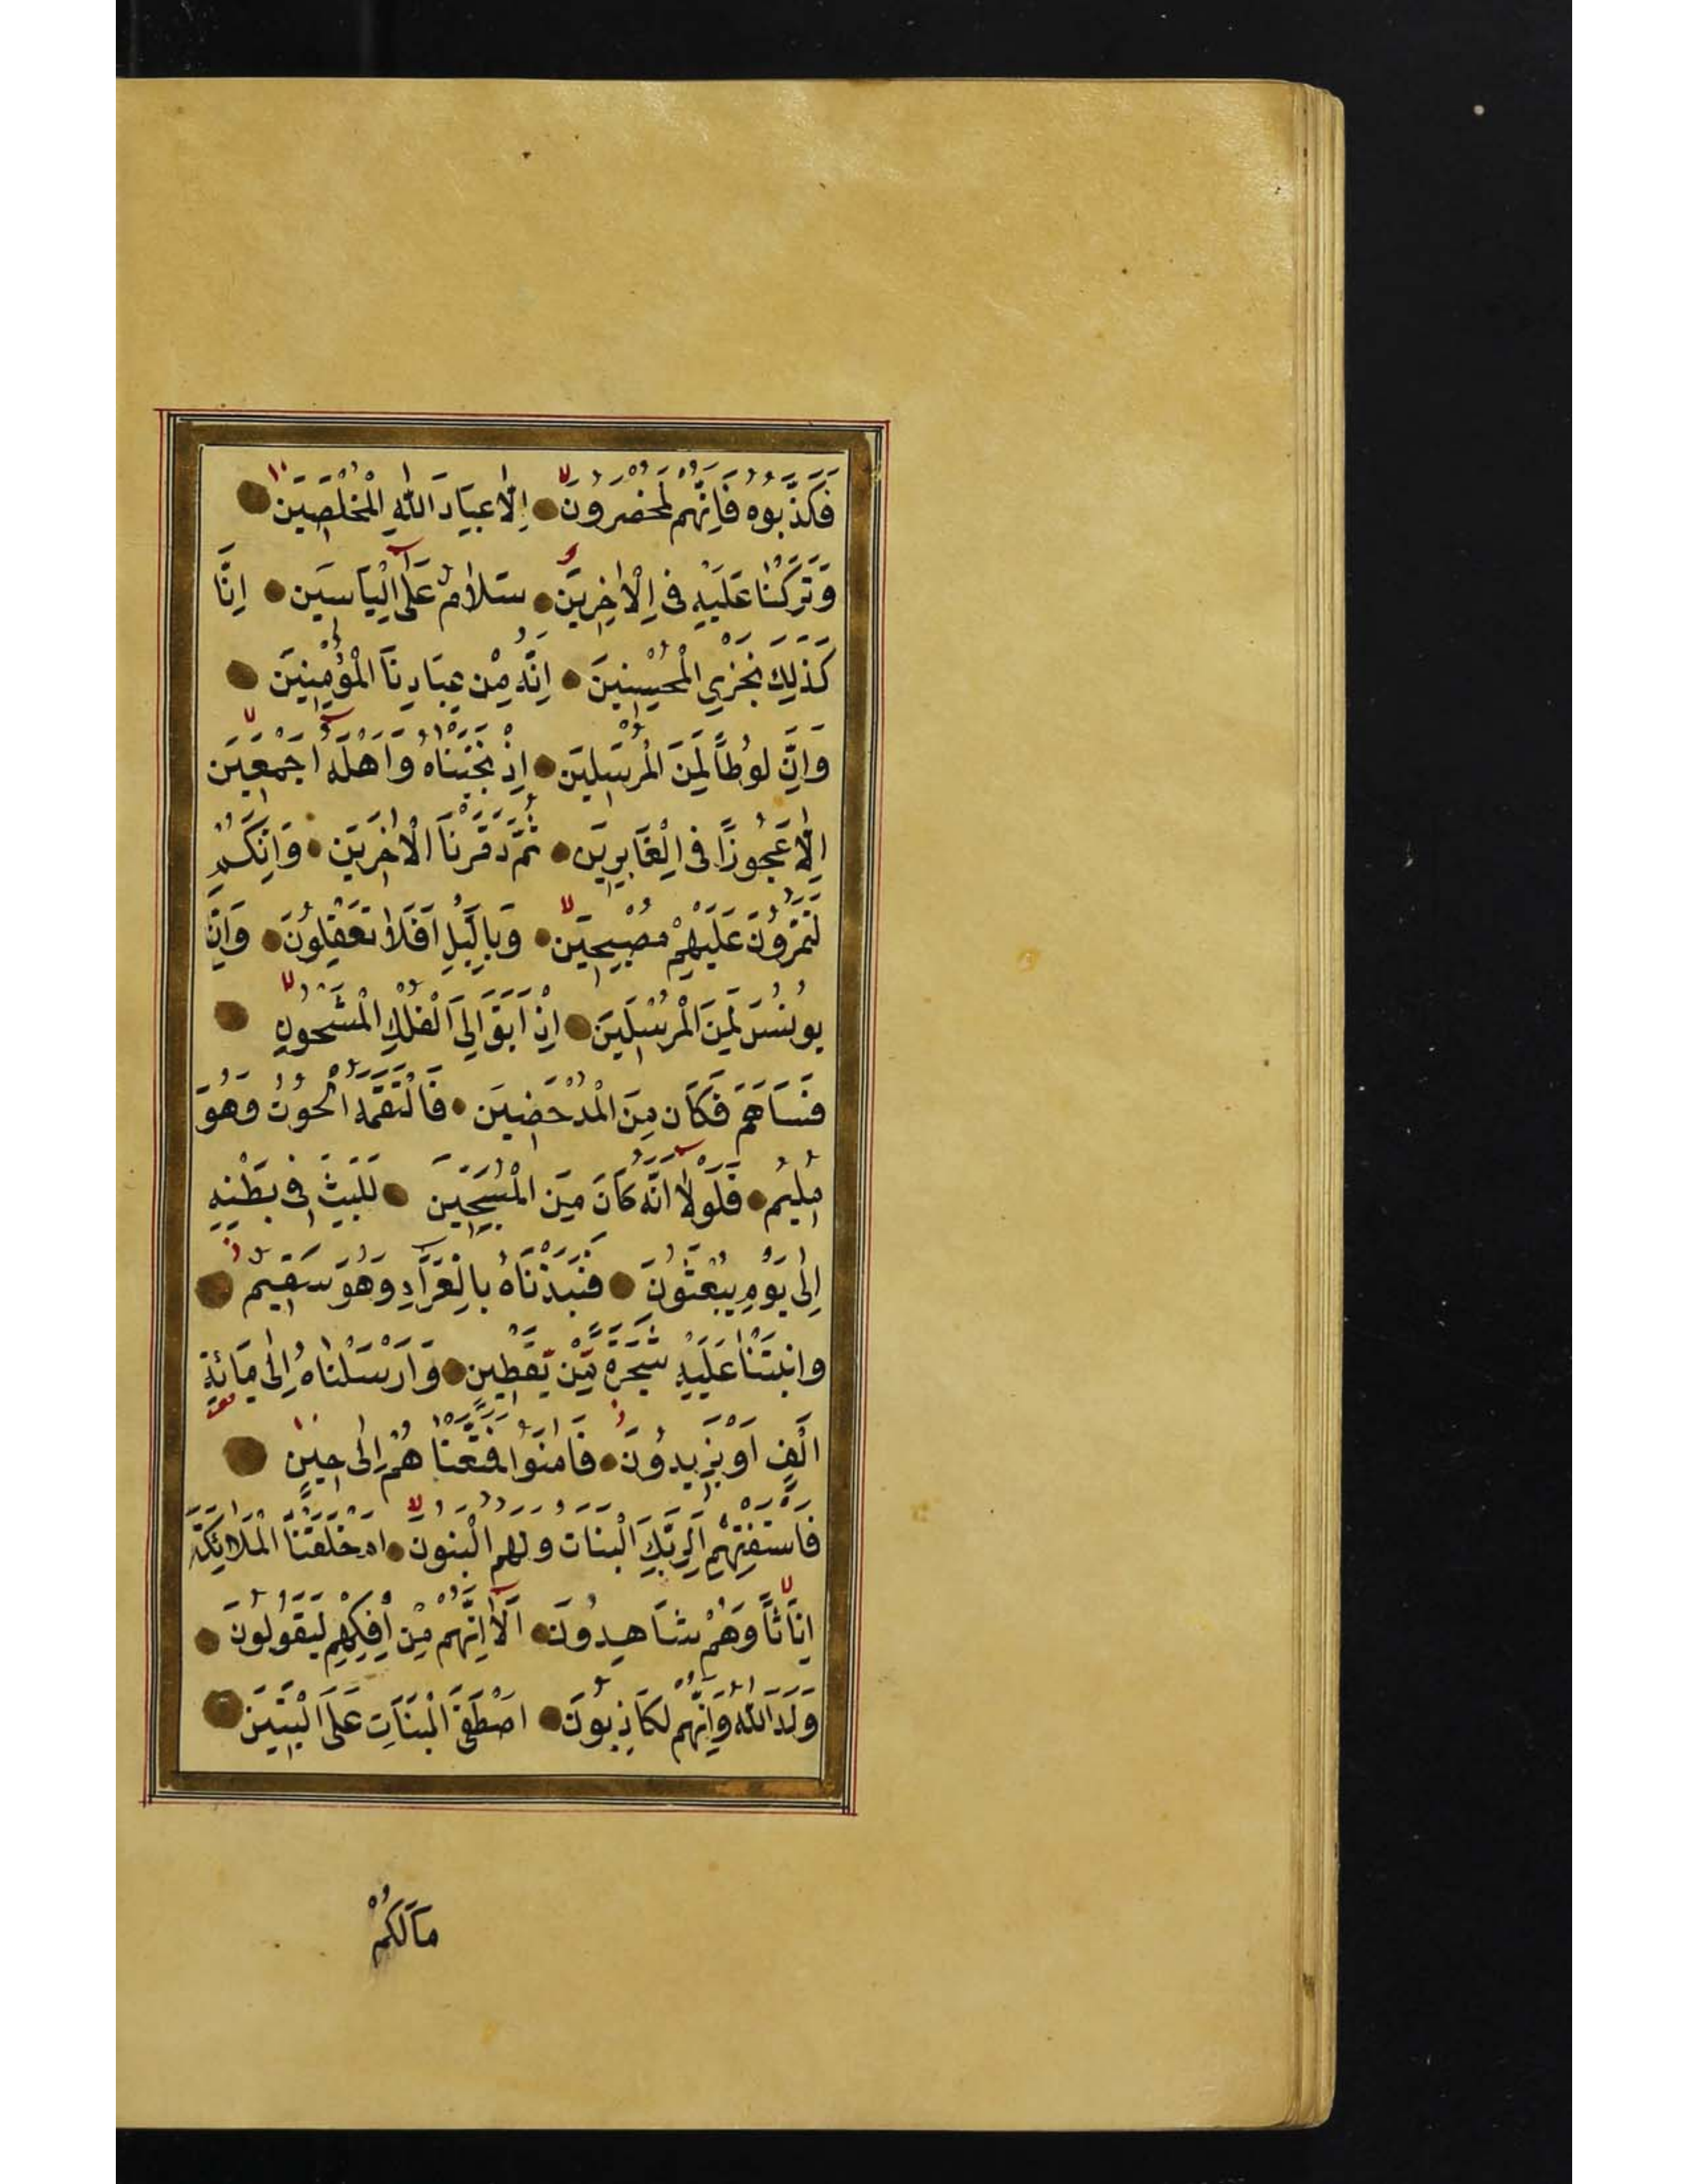 فَكَذَّبُوهُ فَاِنَّهُمْ لَمُحْضَرُونَ اِلَّا عِبَادَ اللّٰهِ الْمُخْلَصِينَ
وَتَرَكْنَا عَلَيْهِ فِى الْاٰخِرِينَ سَلَامٌ عَلٰٓى اِلْيَاسَينَ اِنَّا
كَذٰلِكَ نَجْزِي الْمُحْسِنِينَ اِنَّهُ مِنْ عِبَادِنَا الْمُؤْمِنِينَ
وَاِنَّ لُوطًا لَمِنَ الْمُرْسَلِينَ اِذْ نَجَّيْنَاهُ وَاَهْلَهُٓ اَجْمَعِينَ
اِلَّا عَجُوزًا فِى الْغَابِرِينَ ثُمَّ دَمَّرْنَا الْاٰخَرِينَ وَاِنَّكُمْ
لَتَمُرُّونَ عَلَيْهِمْ مُصْبِحِينَ وَبِالَّيْلِ اَفَلَا تَعْقِلُونَ وَاِنَّ
يُونُسَ لَمِنَ الْمُرْسَلِينَ اِذْ اَبَقَ اِلَى الْفُلْكِ الْمَشْحُونِ
فَسَاهَمَ فَكَانَ مِنَ الْمُدْحَضِينَ فَالْتَقَمَهُ الْحُوتُ وَهُوَ
مُلِيمٌ فَلَوْلَٓا اَنَّهُ كَانَ مِنَ الْمُسَبِّحِينَ لَلَبِثَ فِى بَطْنِهِ
اِلٰى يَوْمِ يُبْعَثُونَ فَنَبَذْنَاهُ بِالْعَرَٓاءِ وَهُوَ سَقِيمٌ
وَانْبَتْنَا عَلَيْهِ شَجَرَةً مِنْ يَقْطِينٍ وَاَرْسَلْنَاهُ اِلٰى مِائَةِ
اَلْفٍ اَوْ يَزِيدُونَ فَاٰمَنُوا فَمَتَّعْنَا هُمْ اِلٰى حِينٍ
فَاسْتَفْتِهِمْ اَلِرَبِّكَ الْبَنَاتُ وَلَهُمُ الْبَنُونَ اَمْ خَلَقْنَا الْمَلَائِكَةَ
اِنَاثًا وَهُمْ شَاهِدُونَ اَلَٓا اِنَّهُمْ مِنْ اِفْكِهِمْ لَيَقُولُونَ
وَلَدَ اللّٰهُ وَاِنَّهُمْ لَكَاذِبُونَ اَصْطَفَى الْبَنَاتِ عَلَى الْبَنِينَ
مَالَكُمْ